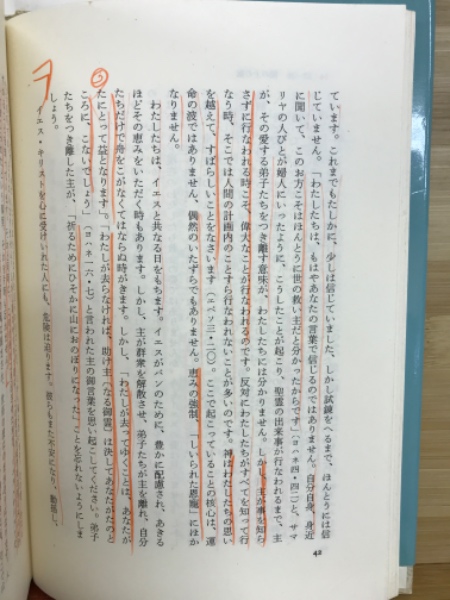 ています。これまでもたしかに、少しは信じていました、しかし試練をへるまで、ほんとうには信
じていません。「わたしたちは、もはやあなたの言葉で信じるのではありません。自分自身、身近
に聞いて、このお方こそはほんとうに世の救い主だと分かったからです」(ヨハネ四・四二)と、サマ
リヤの人びとが婦人にいったように、こうしたことが起こり、聖霊の出来事が行なわれるまで、主
が、その愛する弟子たちをつき離す意味が、わたしたちには分かりません。しかし、主が事を知ら
さずに行なわれる時こそ、偉大なことが行なわれるのです。反対にわたしたちがすべてを知って行
なう時、そこでは人間の計画内のことすら行なわれないことが多いのです。神はわたしたちの思い
を越えて、すばらしいことをなさいます(エペソ三・二〇)。ここで起こっていることの核心は、運
命の波ではありません、偶然のいたずらでもありません。恵みの強制、「しいられた恩寵」にほか
なりません。
わたしたちは、イエスと共なる日をもちます。イエスがパンのために、豊かに配慮され、あきる
ほどその恵みをいただく時もあります。しかし、主が群衆を解散させ、弟子たちが主を離れ、自分
たちだけで舟をこがなくてはならぬ時がきます。しかし、「わたしが去ってゆくことは、あなたが
③
たにとって益となります。」「わたしが去らなければ、助け主〔なる御霊〕は決してあなたがたのと
ころに、こないでしょう」(ヨハネ一六・七)と言われた主の御言葉を思い起こしてください。弟子
たちをつき離した主が、「祈るためにひそかに山におのぼりになった」ことを忘れないようにしま
しょう。
イエス・キリストを心に受けいれた人にも、危険は迫ります。彼らもまた不安になり、動揺し、
42